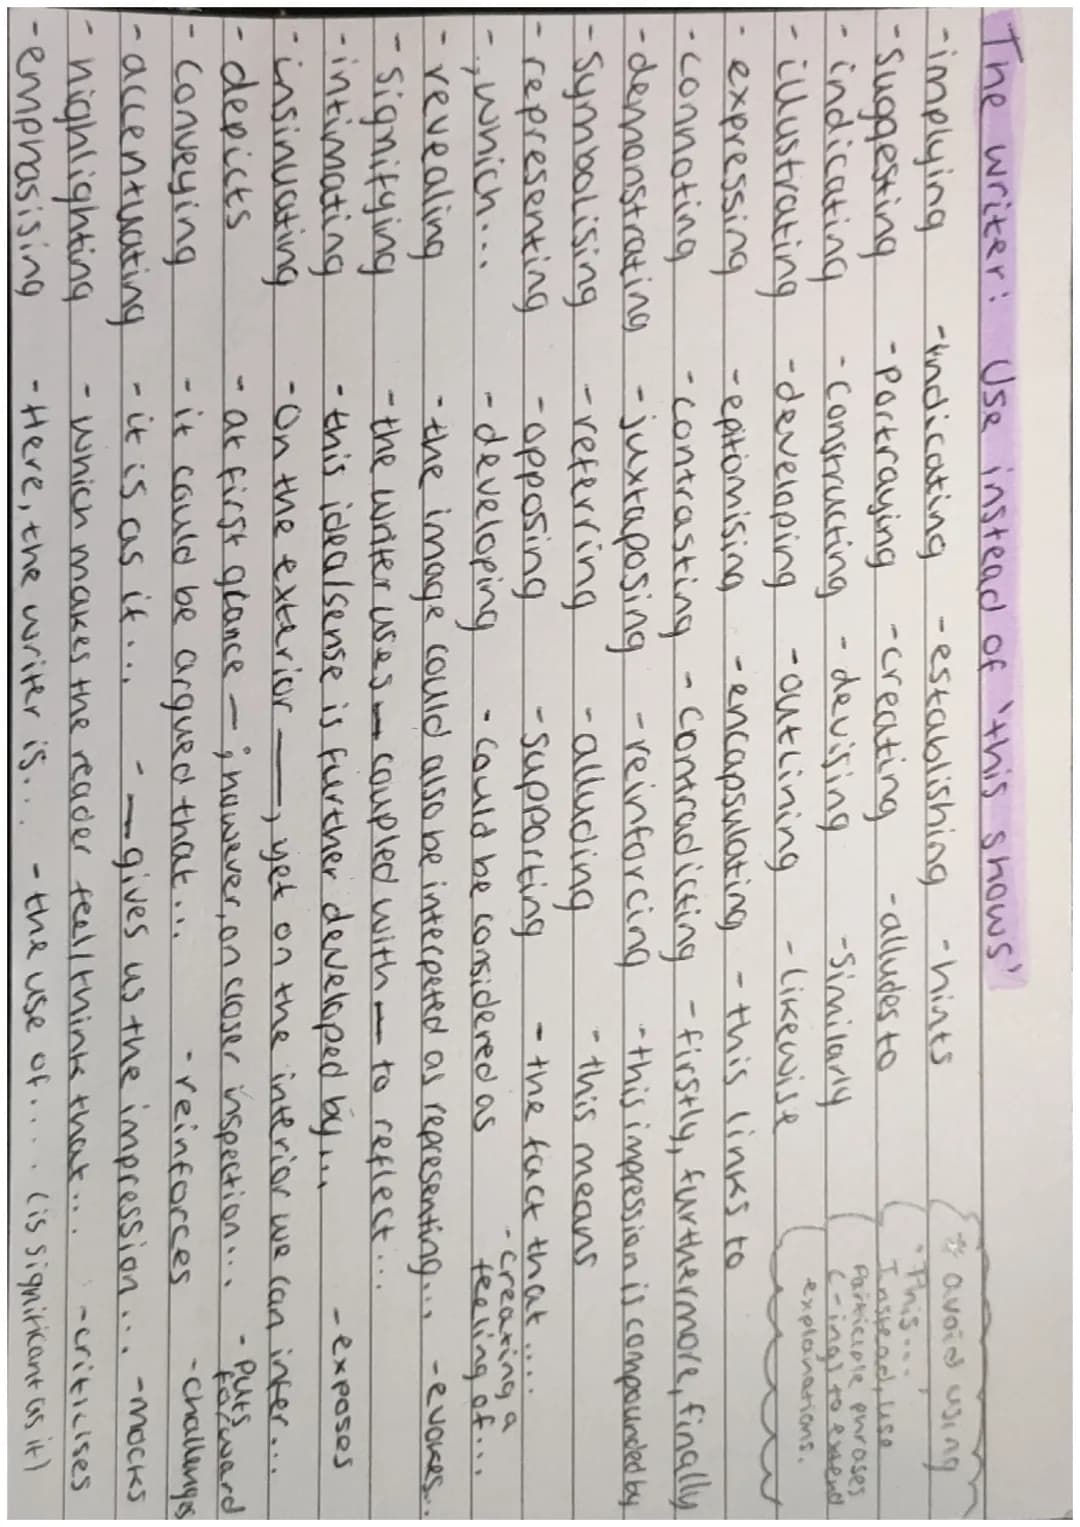 The writer: Use instead of 'this shows'
-implying -indicating -establishing -hints
-suggesting -portraying -creating -alludes to
- indicating -constructing -devising -similarly
- illustrating -developing -outlining -likewise
- expressing -epitomising -encapsulating -this links to
-connoting -contrasting -contradicting -firstly, furthermore, finally
-demonstrating -juxtaposing -reinforcing -this impression is compounded by
-symbolising -referring -alluding -this means
- representing -opposing -supporting -the fact that....
- , which... -developing -could be considered as -creating a feeling of...
- revealing -the image could also be interpeted as representing... -evokes..
- signifying -the writer uses — coupled with — to reflect...
- intimating -this idea/sense is further developed by... -exposes
- insinuating -On the exterior —, yet on the interior we can infer...
- depicts - at first glance — ; however, on closer inspection... -puts forward
- conveying - it could be argued that... -reinforces -challenges
- accentuating - it is as if... - — gives us the impression... -mocks
- highlighting - which makes the reader feel/think that... -criticises
-emphasising -Here, the writer is... -the use of.... (is significant as it)
☆ avoid using
'This...'
Instead, use
participle phrases
(-ing) to extend
explanations.